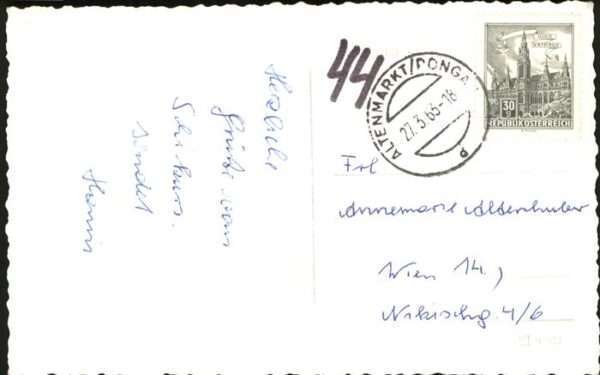 Herzliche
Grüße vom
Schikurs.
sendet
44
ALTENMARKT/PONGAU
27.3.65-18
30
REPUBLIK ÖSTERREICH
Frl
Annemarie
Wien 14,
4/6